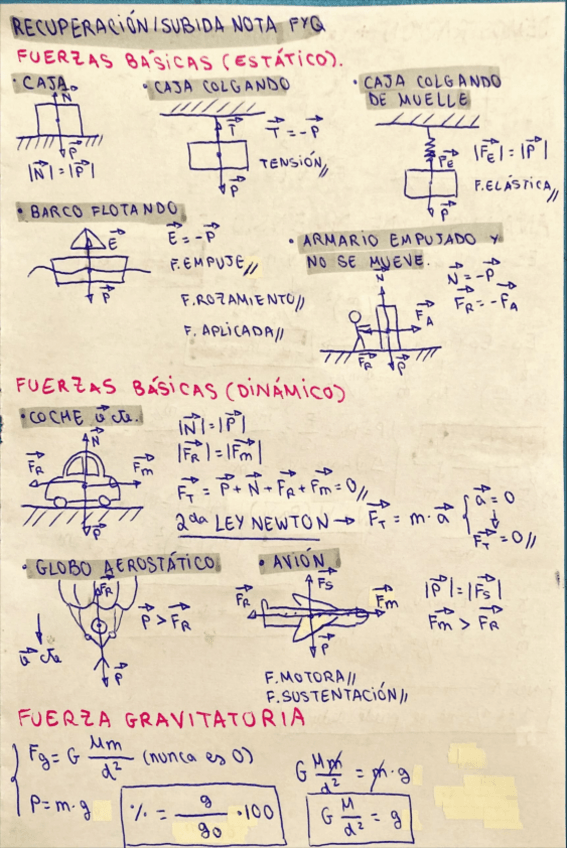 RECUPERACIÓN/SUBIDA NOTA FYQ
FUERZAS BÁSICAS (ESTÁTICO).
· CAJA.
N⃗
P⃗
|N⃗|=|P⃗|
· CAJA COLGANDO
T⃗
P⃗
T⃗ = -P⃗
TENSIÓN//
· CAJA COLGANDO
DE MUELLE
F⃗E
P⃗
|F⃗E| = |P⃗|
F.ELÁSTICA//
· BARCO FLOTANDO
E⃗
P⃗
E⃗ = -P⃗
F.EMPUJE//
F.ROZAMIENTO//
F. APLICADA//
· ARMARIO EMPUJADO Y
NO SE MUEVE.
N⃗
F⃗A
F⃗R
P⃗
N⃗ = -P⃗
F⃗R = -F⃗A
FUERZAS BÁSICAS (DINÁMICO)
· COCHE v⃗ cte.
N⃗
F⃗R
F⃗m
P⃗
|N⃗|=|P⃗|
|F⃗R|=|F⃗m|
F⃗T = P⃗+N⃗+F⃗R+F⃗m=0//
2da LEY NEWTON → F⃗T = m·a⃗ { a⃗ = 0
↓
F⃗T = 0//
· GLOBO AEROSTÁTICO
F⃗R
P⃗ > F⃗R
v⃗ cte
P⃗
· AVIÓN
F⃗S
F⃗R
F⃗m
P⃗
|P⃗| = |F⃗S|
F⃗m > F⃗R
F.MOTORA//
F.SUSTENTACIÓN//
FUERZA GRAVITATORIA
Fg = G Mm/d² (nunca es 0)
P = m·g
% = g/g0 ·100
G Mm/d² = m·g
G M/d² = g